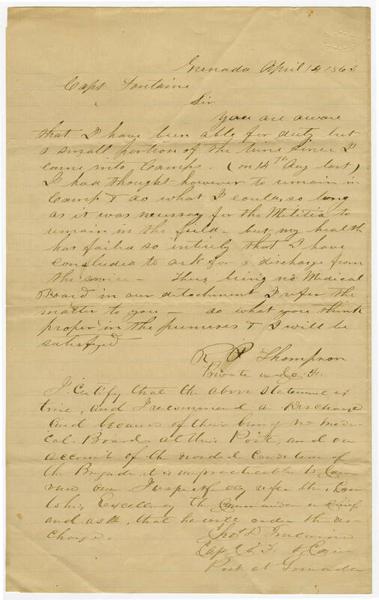 Grenada April 12 186
Capt Fontaine
Sir
You are aware
that I have been able for duty but
a small portion of the time since I
came into Camp (on 14th Aug last)
I had thought however to remain in
Camp & do what I could so long
as it was necessary for the Militia to
remain in the field but my health
has failed so entirely that I have
concluded to ask for a discharge from
the service There being no Medical
Board in our detachment I refer the
matter to you do what you think
proper in the premises & I will be
satisfied
R P Thompson
Private in Co
I certify that the above statement is
true, and I recommend a discharge
And because of their being no medi-
cal Board, at this Post, and on
account of the condition of
the Brigade it is impracticable to
one I respectfully refer this
to his Excellency the Commander in Chief
and ask that he will order the dis-
charge.
Capt
Post at Grenada